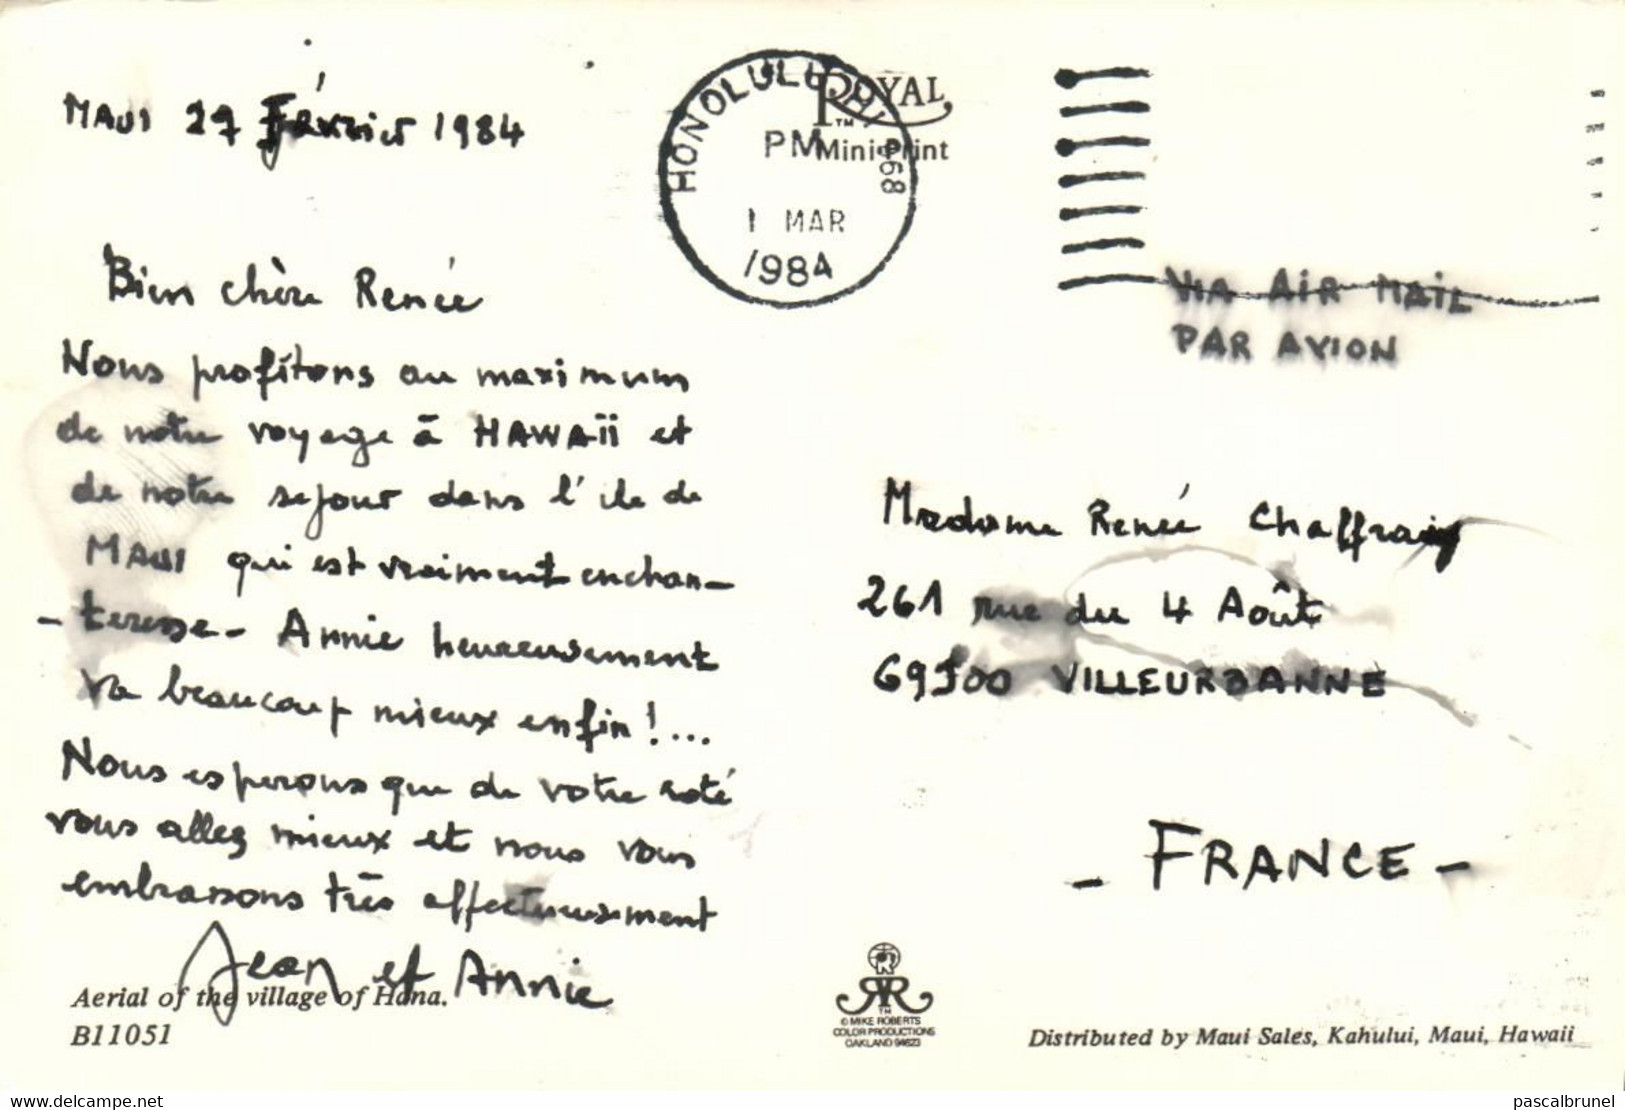 MAUI 27 Février 1984
Bien chère Renée
Nous profitons au maximum
de notre voyage à HAWAïi et
de notre sejour dans l'ile de
MAUI qui est vraiment enchan-
-teresse- Annie heureusement
va beaucoup mieux enfin !...
Nous esperons que de votre coté
vous allez mieux et nous vous
embrassons très affectueusement
Jean et Annie
Aerial of the village of Hana.
B11051
HONOLULU, HI 968
PM
1 MAR
1984
ROYAL
TM
Mini-Print
VIA AIR MAIL
PAR AVION
Madame Renée Chaffraix
261 rue du 4 Août
69100 VILLEURBANNE
- FRANCE -
TM
© MIKE ROBERTS
COLOR PRODUCTIONS
OAKLAND 94623
Distributed by Maui Sales, Kahului, Maui, Hawaii
www.delcampe.net
pascalbrunel